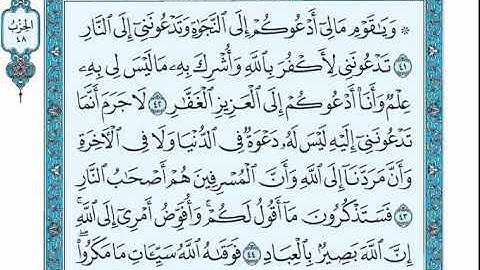 الحزب
٤٨
۞ وَيَٰقَوْمِ مَالِىٓ أَدْعُوكُمْ إِلَى ٱلنَّجَوٰةِ وَتَدْعُونَنِىٓ إِلَى ٱلنَّارِ
٤١ تَدْعُونَنِى لِأَكْفُرَ بِٱللَّهِ وَأُشْرِكَ بِهِۦ مَا لَيْسَ لِى بِهِۦ
عِلْمٌ وَأَنَا۠ أَدْعُوكُمْ إِلَى ٱلْعَزِيزِ ٱلْغَفَّٰرِ ٤٢ لَا جَرَمَ أَنَّمَا
تَدْعُونَنِىٓ إِلَيْهِ لَيْسَ لَهُۥ دَعْوَةٌ فِى ٱلدُّنْيَا وَلَا فِى ٱلْءَاخِرَةِ
وَأَنَّ مَرَدَّنَآ إِلَى ٱللَّهِ وَأَنَّ ٱلْمُسْرِفِينَ هُمْ أَصْحَٰبُ ٱلنَّارِ
٤٣ فَسَتَذْكُرُونَ مَآ أَقُولُ لَكُمْ ۚ وَأُفَوِّضُ أَمْرِىٓ إِلَى ٱللَّهِ ۚ
إِنَّ ٱللَّهَ بَصِيرٌۢ بِٱلْعِبَادِ ٤٤ فَوَقَىٰهُ ٱللَّهُ سَيِّـَٔاتِ مَا مَكَرُوا۟ ۖ